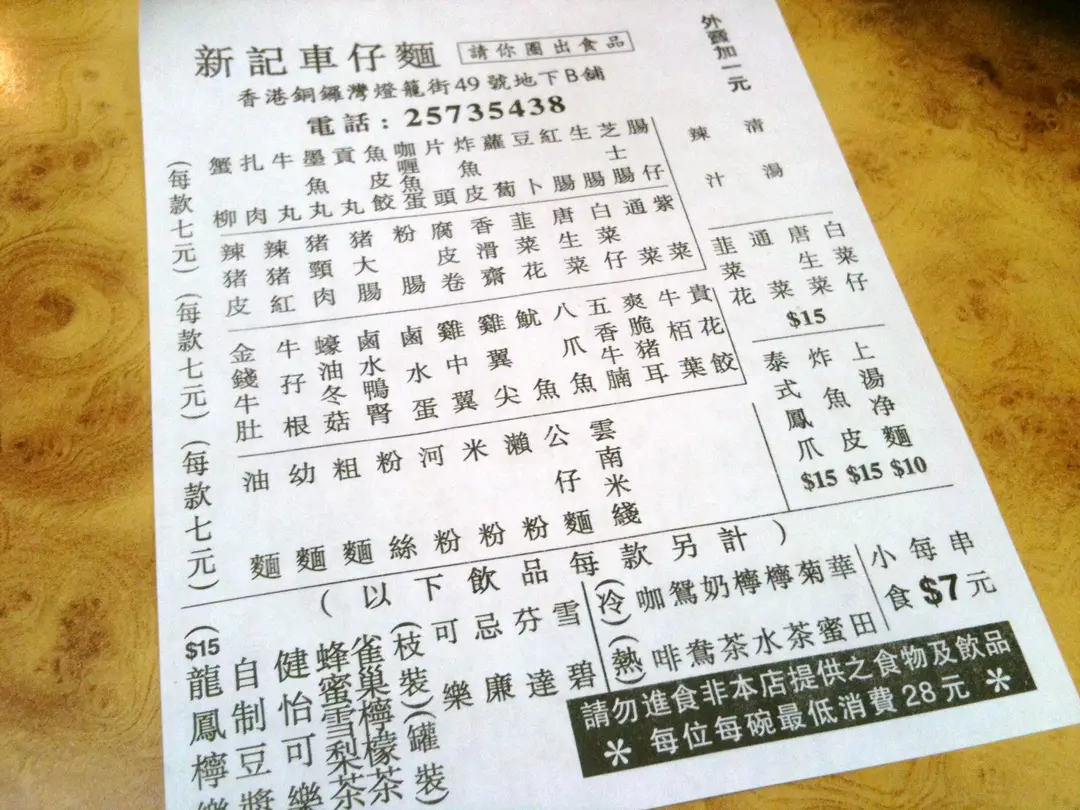 新記車仔麵
請你圈出食品
香港銅鑼灣燈籠街49號地下B舖
電話：25735438
外賣加一元
(每款七元)
蟹柳
扎肉
牛丸
墨魚丸
貢丸
魚皮餃
咖喱魚蛋
片頭
炸魚皮
蘿蔔
豆卜
紅腸
生腸
芝士腸
腸仔
辣汁
清湯
(每款七元)
辣豬皮
辣豬紅
豬頸肉
豬大腸
粉腸
腐皮卷
香滑齋
韮菜花
唐生菜
白菜仔
通菜
紫菜
韮菜花
通菜
唐生菜
白菜仔
$15
(每款七元)
金錢牛肚
牛孖根
蠔油冬菇
鹵水鴨腎
鹵水蛋
雞中翼
雞翼尖
魷魚
八爪魚
五香牛腩
爽脆豬耳
牛栢葉
貴花餃
泰式鳳爪 $15
炸魚皮 $15
上湯净麵 $10
油麵
幼麵
粗麵
粉絲
河粉
米粉
瀨粉
公仔麵
雲南米綫
(以下飲品每款另計)
($15
龍鳳檸樂
自制豆漿
健怡可樂
蜂蜜雪梨茶
雀巢檸檬茶
(枝裝)(罐裝)
可樂
忌廉
芬達
雪碧
(冷)(熱)
咖啡
鴛鴦
奶茶
檸水
檸茶
菊蜜
華田
小食
每串
$7元
請勿進食非本店提供之食物及飲品
* 每位每碗最低消費28元 *